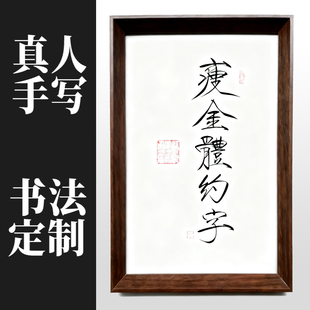 真人
手写
书法
定制
瘦金體约字